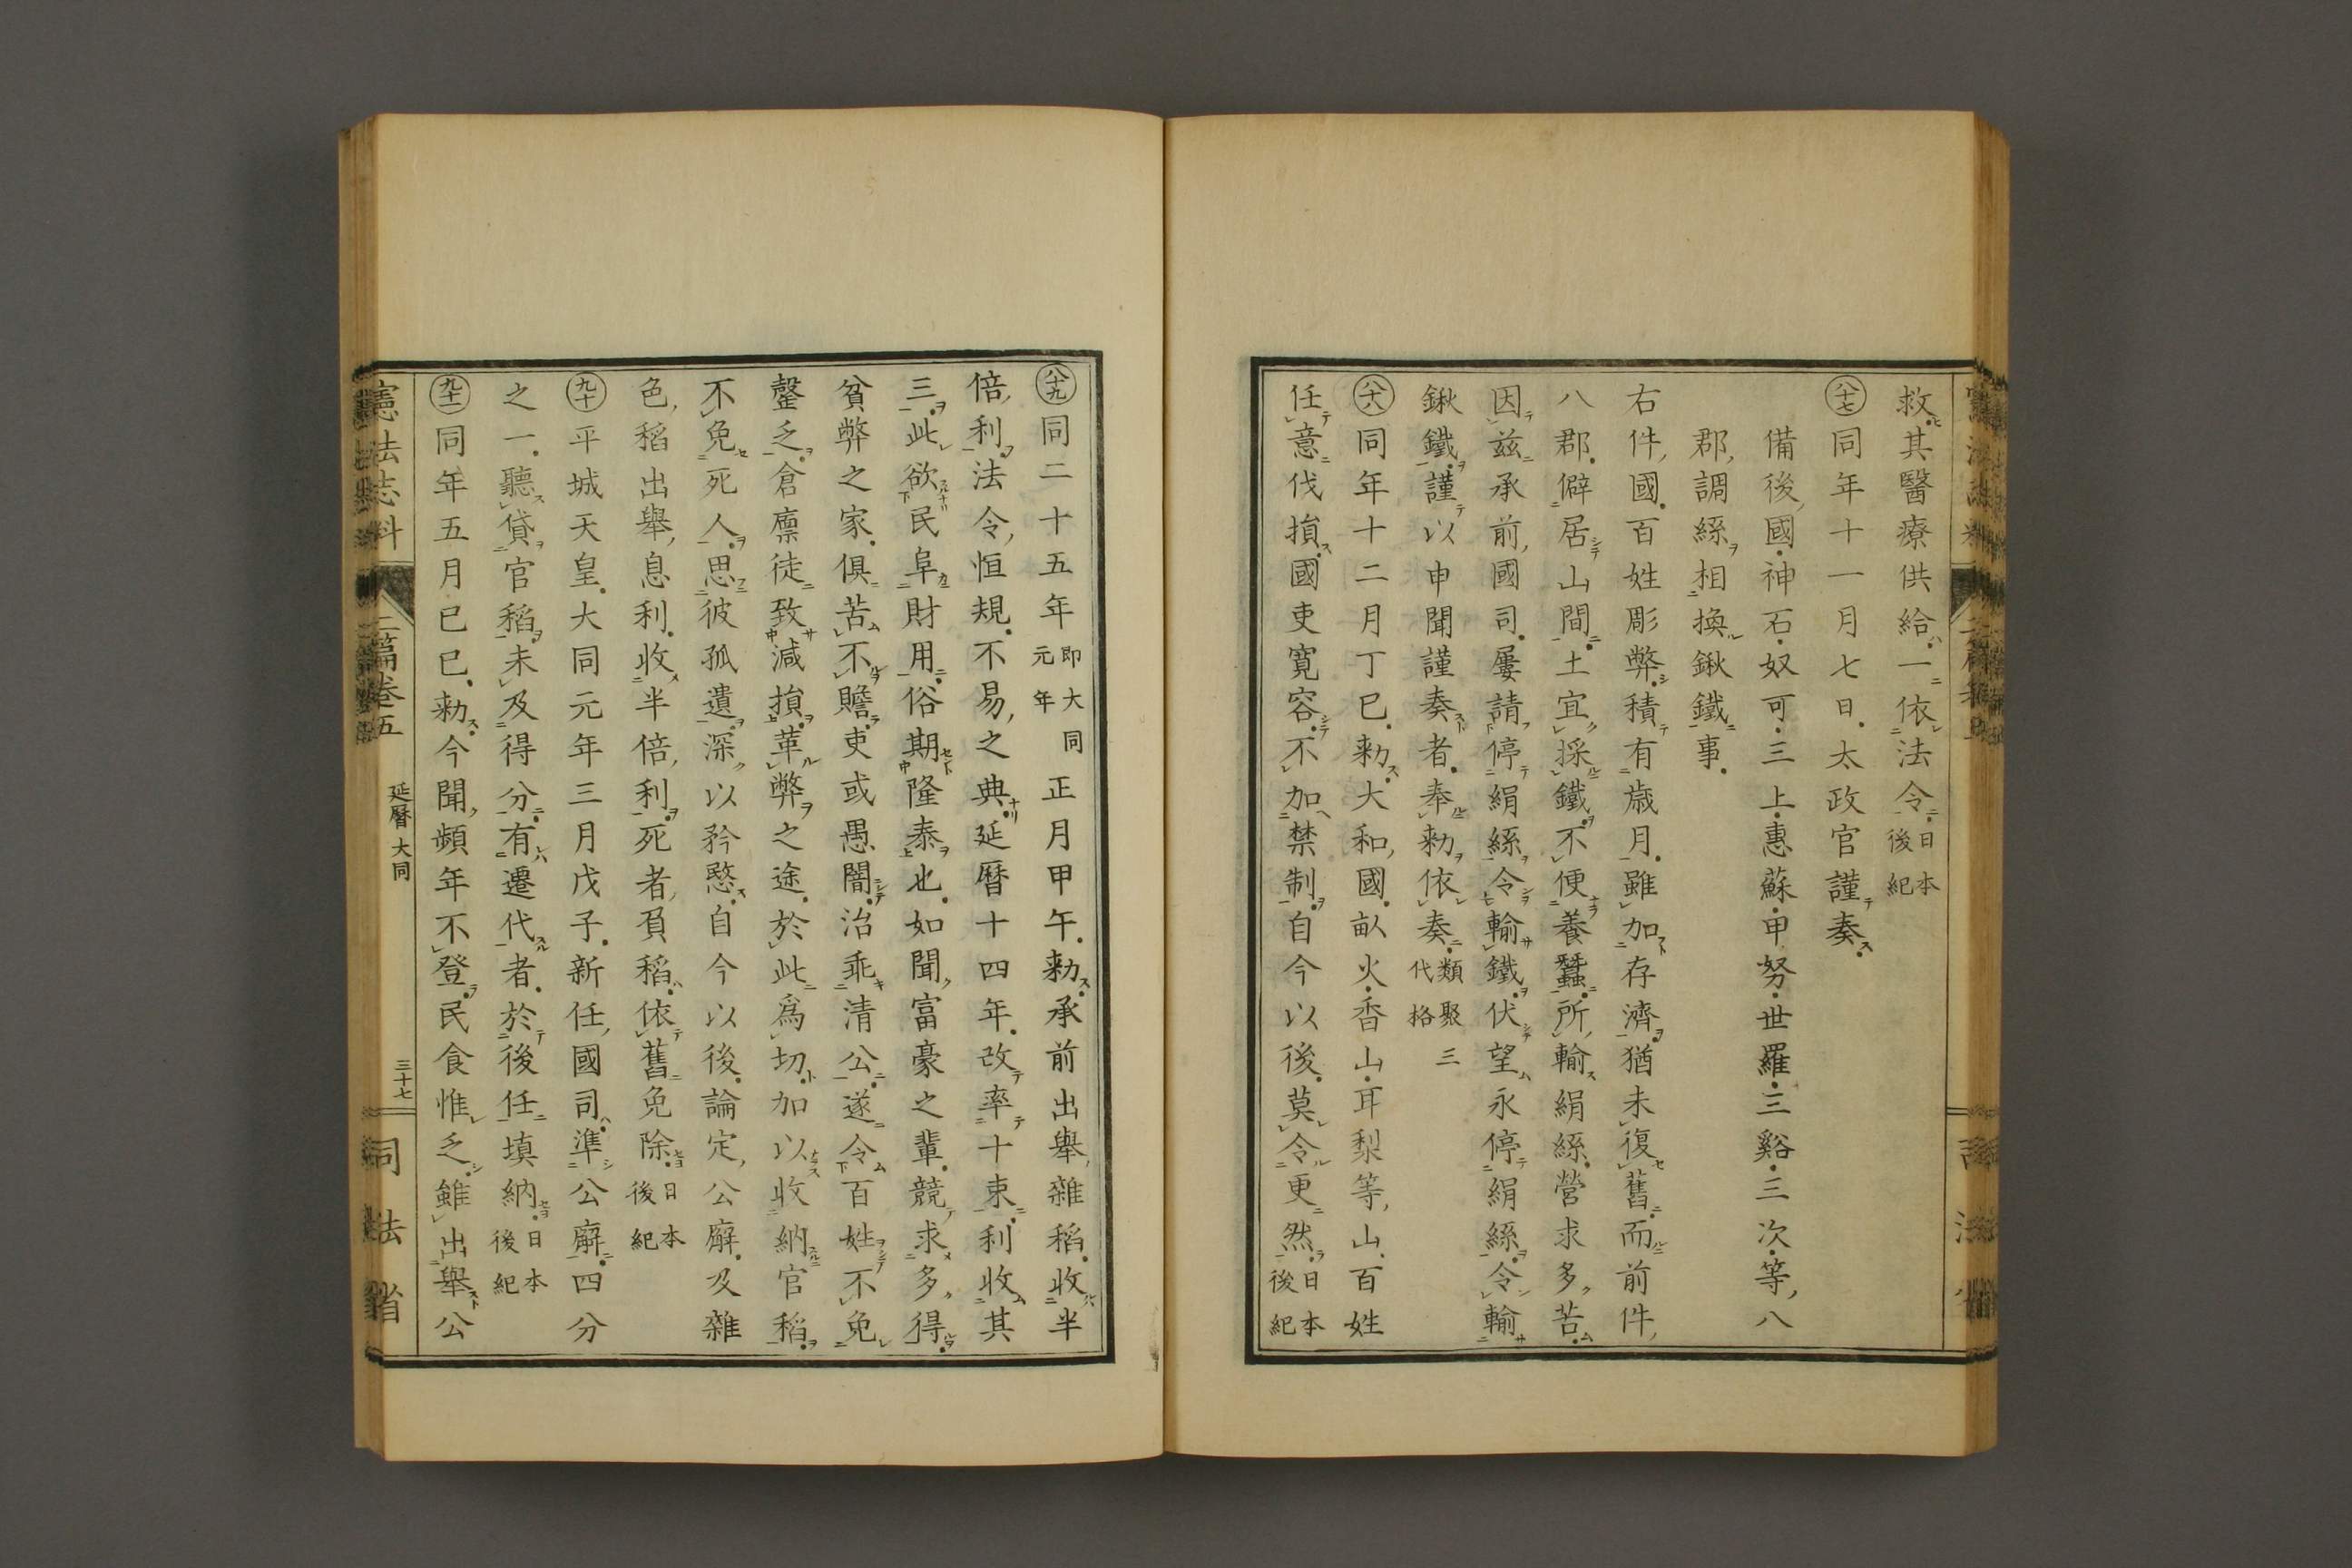 救其醫療供給一依法令日本後紀
八十七同年十一月七日太政官謹奏
備後國神石奴可三上惠蘇甲努世羅三谿三次等八
郡調絲相換鍬鐵事
右件國百姓彫弊積有歲月雖加存濟猶未復舊而前件
八郡僻居山間土宜採鐵不便養蠶所輸絹絲營求多苦
因茲承前國司屢請停絹絲令輸鐵伏望永停絹絲令輸
鍬鐵謹以申聞謹奏者奉勑依奏類聚三代格
八十八同年十二月丁巳勑大和國畝火香山耳梨等山百姓
任意伐損國吏寬容不加禁制自今以後莫令更然日本後紀
八十九同二十五年即大同元年正月甲午勑承前出舉雜稻收半
倍利法令恒規不易之典延曆十四年改率十束利收其
三此欲民阜財用俗期隆泰也如聞富豪之輩競求多得
貧弊之家俱苦不贍吏或愚闇治乖清公遂令百姓不免
罄乏倉廩徒致減損革弊之途於此爲切加以收納官稻
不免死人思彼孤遺深以矜愍自今以後論定公廨及雜
色稻出舉息利收半倍利死者負稻依舊免除日本後紀
九十平城天皇大同元年三月戊子新任國司準公廨四分
之一聽貸官稻未及得分有遷代者於後任填納日本後紀
九十一同年五月己巳勑今聞頻年不登民食惟乏雖出舉公
憲法志料 二篇卷五 延曆 大同 三十七 司法省